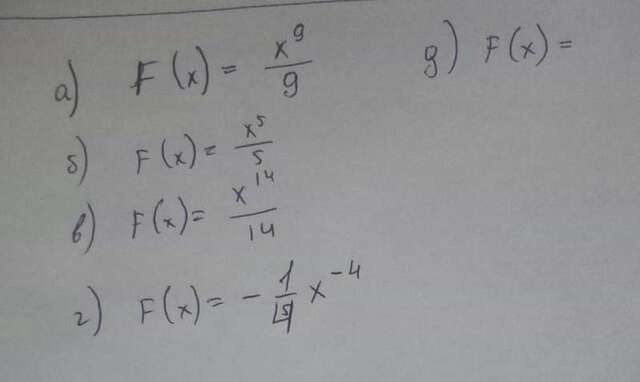 а) F(x) = x⁹/9
д) F(x) =
б) F(x) = x⁵/5
в) F(x) = x¹⁴/14
г) F(x) = - 1/5 x⁻⁴